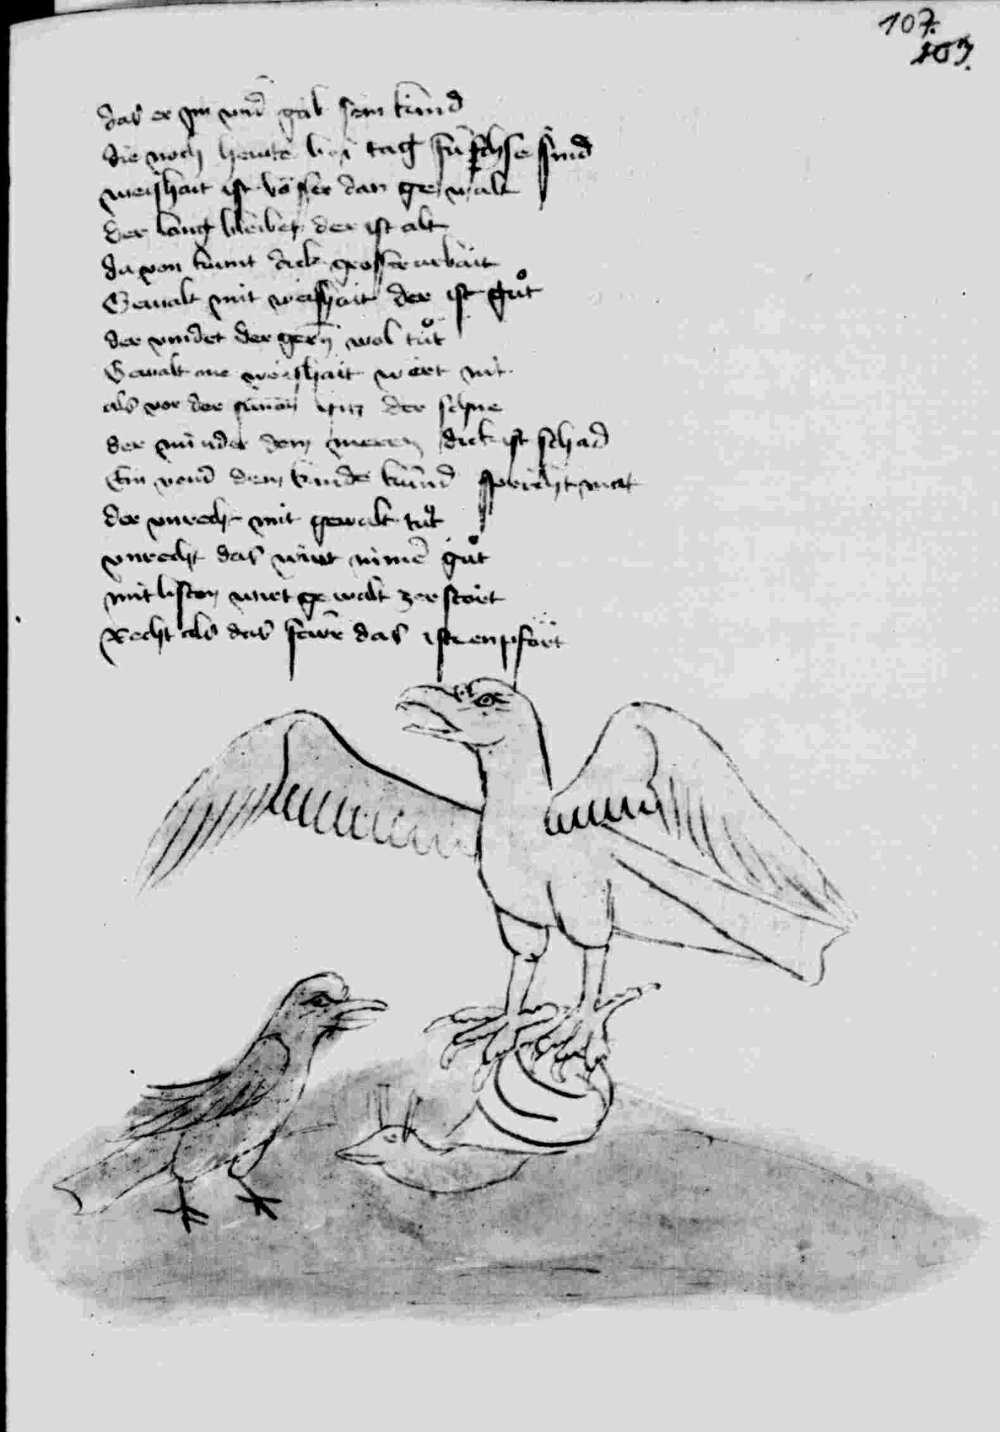 107.
107.
das er im vnd gab sein kind
die noch heute bei tag füchse sind
weishait ist bösser dan gewalt
der lang bleibet der ist alt
da von kumt dick grosser arbait
Gewalt mit weishait der ist gůt
der vindet der gern wol tůt
Gewalt one weishait wert nit
als vor der sunnen der schne
der minder dem merern dick ist schad
Ein dem kinde spricht mat
der vnrecht mit gewalt tůt
vnrecht das wirt nimer gůt
mit listen wirt gewalt zerstört
Recht als das fewr das ist enpfört